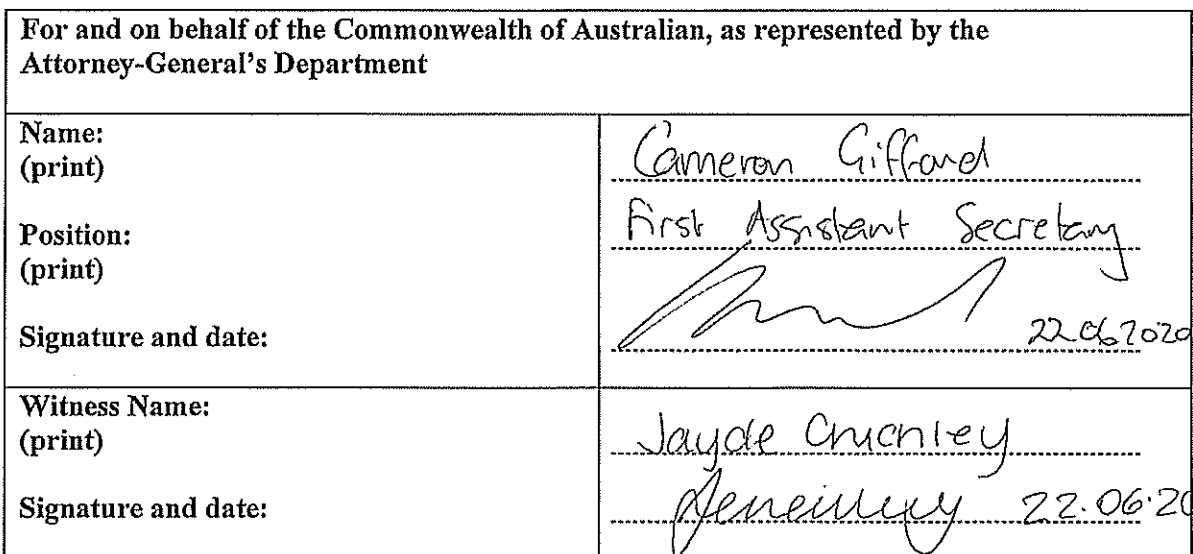 For and on behalf of the Commonwealth of Australian, as represented by the
Attorney-General's Department
Name:
(print)
Cameron Giffard
Position:
(print)
First Assistant Secretary
Signature and date:
22.06.2020
Witness Name:
(print)
Jayde
Signature and date:
22.06.20